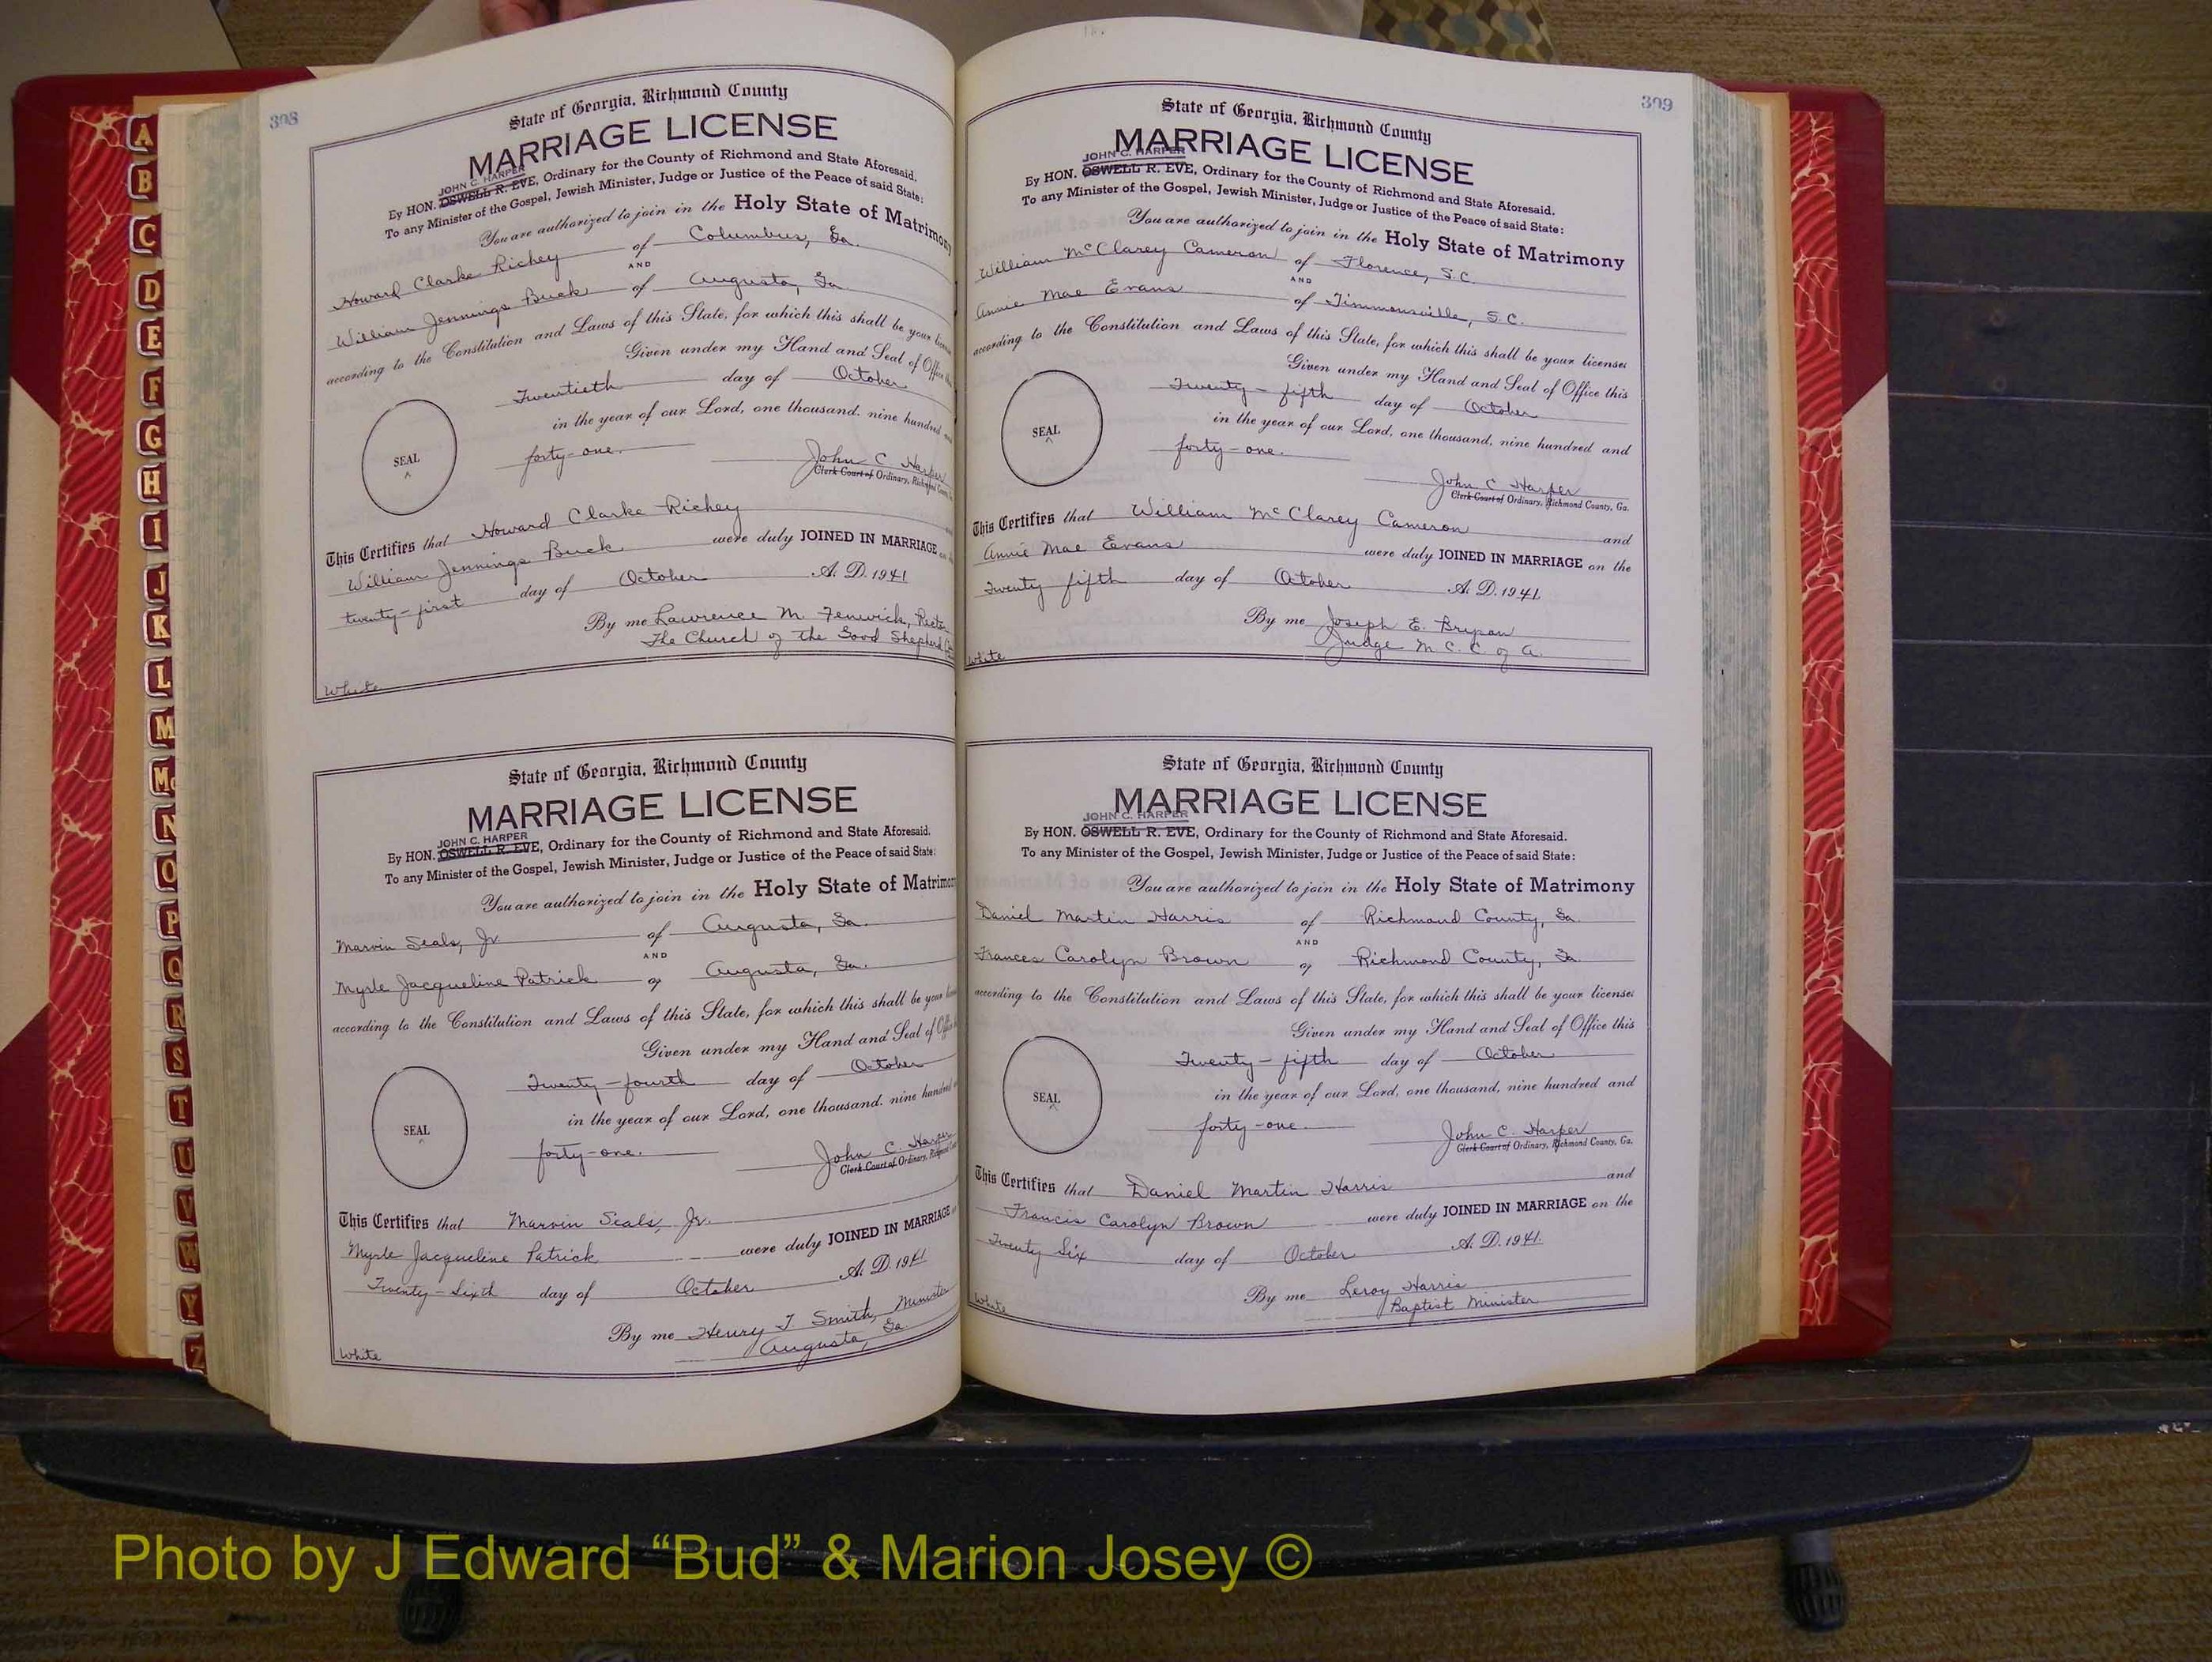 308
State of Georgia, Richmond County
MARRIAGE LICENSE
JOHN C. HARPER
By HON. OSWELL R. EVE, Ordinary for the County of Richmond and State Aforesaid.
To any Minister of the Gospel, Jewish Minister, Judge or Justice of the Peace of said State:
You are authorized to join in the Holy State of Matrimony
Howard Clarke Richey of Columbus, Ga.
AND
William Jennings Buck of Augusta, Ga
according to the Constitution and Laws of this State, for which this shall be your
Given under my Hand and Seal of Office
Twentieth day of October
in the year of our Lord, one thousand, nine hundred
forty-one.
SEAL
John C. Harper
Clerk Court of Ordinary, Richmond County
This Certifies that Howard Clarke Richey
William Jennings Buck were duly JOINED IN MARRIAGE
twenty-first day of October A. D. 1941
By me Lawrence M. Fenwick,
The Church of the Good Shepherd
White
State of Georgia, Richmond County
MARRIAGE LICENSE
JOHN C. HARPER
By HON. OSWELL R. EVE, Ordinary for the County of Richmond and State Aforesaid.
To any Minister of the Gospel, Jewish Minister, Judge or Justice of the Peace of said State:
You are authorized to join in the Holy State of Matrimony
Marvin Seals, Jr of Augusta, Ga.
AND
Myrle Jacqueline Patrick of Augusta, Ga.
according to the Constitution and Laws of this State, for which this shall be your
Given under my Hand and Seal of Office
Twenty-fourth day of October
in the year of our Lord, one thousand, nine hundred
forty-one.
SEAL
John C. Harper
Clerk Court of Ordinary, Richmond
This Certifies that Marvin Seals, Jr.
Myrle Jacqueline Patrick were duly JOINED IN MARRIAGE
Twenty-Sixth day of October A. D. 1941
By me Henry J Smith, Minister
Augusta, Ga.
White
309
State of Georgia, Richmond County
MARRIAGE LICENSE
JOHN C. HARPER
By HON. OSWELL R. EVE, Ordinary for the County of Richmond and State Aforesaid.
To any Minister of the Gospel, Jewish Minister, Judge or Justice of the Peace of said State:
You are authorized to join in the Holy State of Matrimony
William McClarey Cameron of Florence, S.C.
AND
Annie Mae Evans of Timmonsville, S.C.
according to the Constitution and Laws of this State, for which this shall be your license:
Given under my Hand and Seal of Office this
Twenty-fifth day of October
in the year of our Lord, one thousand, nine hundred and
forty-one.
SEAL
John C Harper
Clerk Court of Ordinary, Richmond County, Ga.
This Certifies that William McClarey Cameron and
Annie Mae Evans were duly JOINED IN MARRIAGE on the
Twenty fifth day of October A. D. 1941
By me Joseph E. Bryson
Judge M. C. C. of A.
White
State of Georgia, Richmond County
MARRIAGE LICENSE
JOHN C. HARPER
By HON. OSWELL R. EVE, Ordinary for the County of Richmond and State Aforesaid.
To any Minister of the Gospel, Jewish Minister, Judge or Justice of the Peace of said State:
You are authorized to join in the Holy State of Matrimony
Daniel Martin Harris of Richmond County, Ga.
AND
Frances Carolyn Brown of Richmond County, Ga
according to the Constitution and Laws of this State, for which this shall be your license:
Given under my Hand and Seal of Office this
Twenty-fifth day of October
in the year of our Lord, one thousand, nine hundred and
forty-one.
SEAL
John C. Harper
Clerk Court of Ordinary, Richmond County, Ga.
This Certifies that Daniel Martin Harris and
Francis Carolyn Brown were duly JOINED IN MARRIAGE on the
Twenty Six day of October A. D. 1941.
By me Leroy Harris
Baptist Minister
White
A
B
C
D
E
F
G
H
I
J
K
L
M
Mc
N
O
P
Q
R
S
T
U
V
W
Y
Z
Photo by J Edward “Bud” & Marion Josey ©